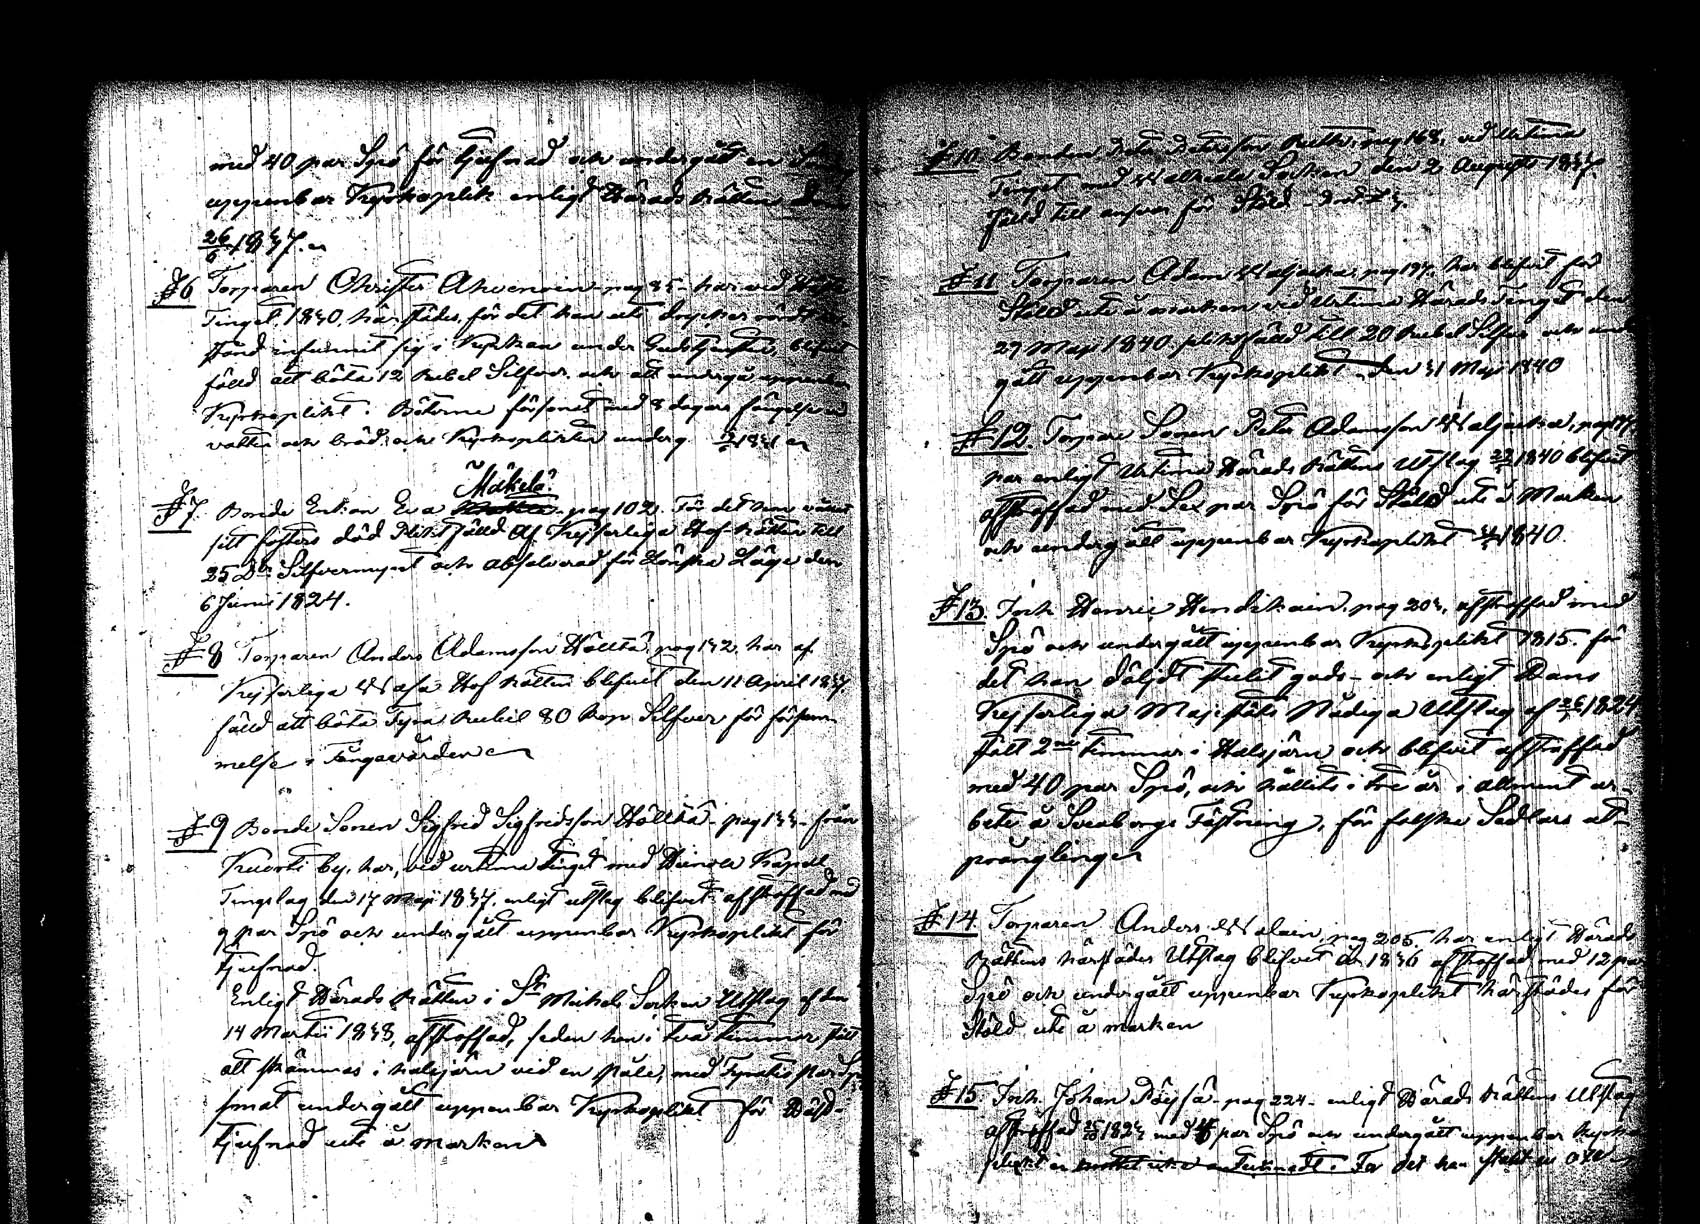 med 40 par Spö för tjufnad och undergått en
uppenbar Kyrkoplikt enligt Härads Rätten
26/6 1837.
§ 6 Torparen Christer Ahvenain pag 85 - har vid
Tinget 1830, härstädes, för det han
stånd infunnit sig i Kyrkan under Gudstjensten, blifvit
fälld att böta 12 Rubel Silfver och att undergå uppenbar
Kyrkoplikt. Böterne försonat med 8 dagars fängelse vid
vatten och bröd, och Kyrkoplikten underg. 1831
Mäkelä
§ 7 Bonde Enkan Eva pag 102. För det hon vållat
sitt fosters död Pliktfälld af Kejserliga Hof-Rätten till
25 Dr Silfvermynt och absolverad för Lönska Läge den
6 Junii 1824.
§ 8 Torparen Anders Adamsson Hölttä pag 132. har af
Kejserliga Wasa Hof Rätten blifvit den 11 April 1837.
fälld att böta Fyra Rubel 80 Kop Silfver för försum-
melse i Fångevården
§ 9 Bonde Sonen Sigfred Sigfredsson Hölttä - pag 133 - från
by. har, vid urtima Tinget med Heinola Kapell
Tingslag den 17 Maji 1837. enligt utslag blifvit afstraffad med
9 par Spö och undergått uppenbar Kyrkoplikt för
tjufnad.
Enligt Härads Rättens i St Michels Socken Utslag af den
14 Martii 1838, afstraffad, sedan han i två timmar stått
att skämmas i halsjärn vid en påle, med Fyratio par Spö
samt undergått uppenbar Kyrkoplikt för
tjufnad ute å marken
§ 10. Bonden Petersson pag 168, vid Urtima
Tinget med Walkeala Socken den 2 Augusti
fälld till ansvar för Stöld
§ 11 Torparen Adam Waljacka pag 197. har blifvit för
Stöld ute å marken vid Urtima Härads Tinget den
27 Maji 1840. pliktfälld till 20 Rubel Silfver och under
gått uppenbar Kyrkoplikt den 31 Maji 1840
§ 12. Torpare Sonen Peter Adamsson Waljacka, pag 197.
har enligt Urtima Härads Rättens Utslag 1840 blifvit
afstraffad med Sex par Spö för Stöld ute å Marken
och undergått uppenbar Kyrkoplikt 1840.
§ 13. Inh. Henric Hendikain pag 203, afstraffad med
Spö och undergått uppenbar Kyrkoplikt 1815. för
det han döljdt stulet gods - och enligt Hans
Kejserliga Maj:stäts Nådiga Utslag af 1824
stått 2ne timmar i Halsjärn och blifvit afstraffad
med 40 par Spö, och hållits i tre år i allmänt ar-
bete å Sveaborgs Fästning, för falske Sedlars ut-
prångling
§ 14. Torparen Anders Walain, pag 205. har enligt Härads
Rättens härstädes Utslag blifvit år 1836 afstraffad med 12 par
Spö och undergått uppenbar Kyrkoplikt härstädes för
Stöld ute å marken
§ 15 Inh. Johan Pöysä - pag 224 - enligt Härads Rättens Utslag
afstraffad med 4 par Spö och undergått uppenbar Kyrko
plikt För det han stulit en